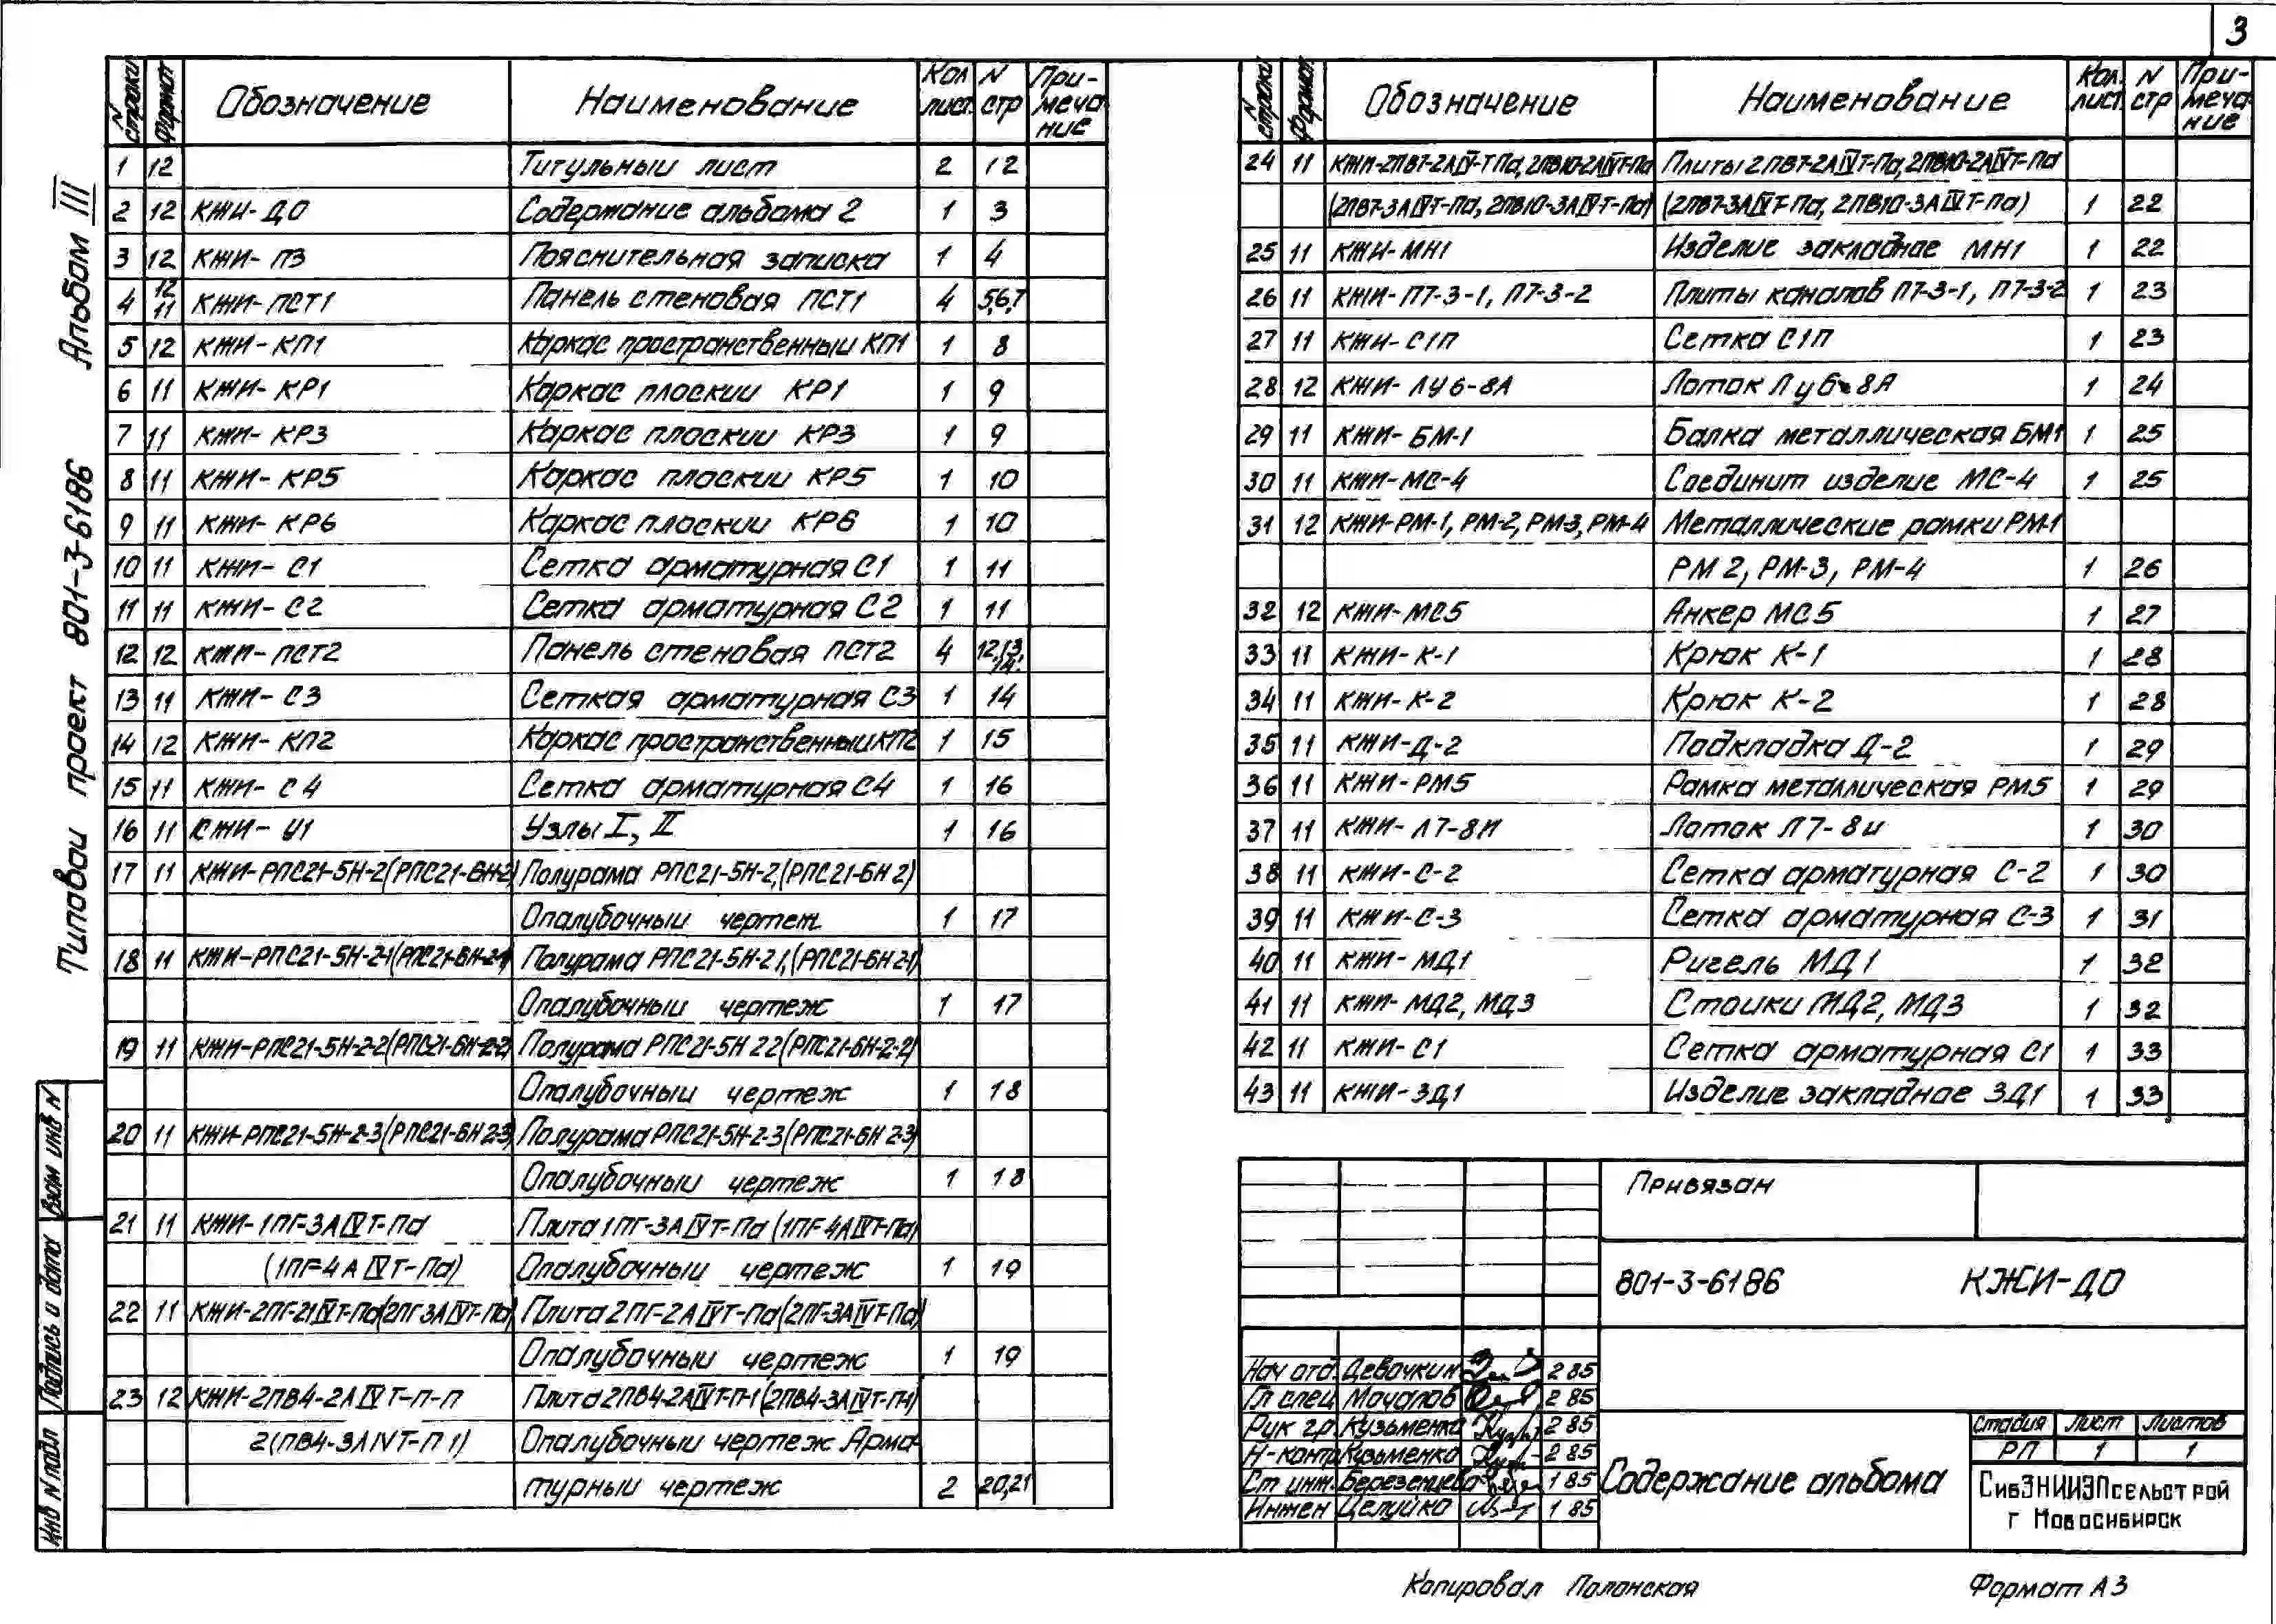 3
Типовой проект 801-3-61 86 Альбом III
N строки Формат Обозначение Наименование Кол. лист. N стр Примечание
1 12 Титульный лист 2 1 2
2 12 КЖИ-ДО Содержание альбома 2 1 3
3 12 КЖИ-ПЗ Пояснительная записка 1 4
4 12 11 КЖИ-ПСТ1 Панель стеновая ПСТ1 4 5,6,7
5 12 КЖИ-КП1 Каркас пространственный КП1 1 8
6 11 КЖИ-КР1 Каркас плоский КР1 1 9
7 11 КЖИ-КР3 Каркас плоский КР3 1 9
8 11 КЖИ-КР5 Каркас плоский КР5 1 10
9 11 КЖИ-КР6 Каркас плоский КР6 1 10
10 11 КЖИ-С1 Сетка арматурная С1 1 11
11 11 КЖИ-С2 Сетка арматурная С2 1 11
12 12 КЖИ-ПСТ2 Панель стеновая ПСТ2 4 12,13,14.
13 11 КЖИ-С3 Сеткая арматурная С3 1 14
14 12 КЖИ-КП2 Каркас пространственный КП2 1 15
15 11 КЖИ-С4 Сетка арматурная С4 1 16
16 11 КЖИ-У1 Узлы I, II 1 16
17 11 КЖИ-РПС21-5Н-2(РПС21-6Н-2) Полурама РПС21-5Н-2,(РПС21-6Н 2)
Опалубочный чертеж 1 17
18 11 КЖИ-РПС21-5Н-2-1(РПС21-6Н-2-1) Полурама РПС21-5Н-2 1,(РПС21-6Н 2-1)
Опалубочный чертеж 1 17
19 11 КЖИ-РПС21-5Н-2-2(РПС21-6Н-2-2) Полурама РПС21-5Н 2 2(РПС21-6Н-2-2)
Опалубочный чертеж 1 18
20 11 КЖИ-РПС21-5Н-2-3(РПС21-6Н 2-3) Полурама РПС21-5Н-2-3(РПС21-6Н 2-3)
Опалубочный чертеж 1 18
21 11 КЖИ-1ПГ-3АIVТ-Па Плита 1ПГ-3АIVТ-Па (1ПГ-4АIVТ-Па)
(1ПГ-4АIVТ-Па) Опалубочный чертеж 1 19
22 11 КЖИ-2ПГ-21IVТ-Па(2ПГ 3АIVТ-Па) Плита 2ПГ-2АIVТ-Па(2ПГ-3АIVТ-Па)
Опалубочный чертеж 1 19
23 12 КЖИ-2ПВ4-2АIVТ-П-П Плита 2ПВ4-2АIVТ-П-1(2ПВ4-3АIVТ-П-1)
2(ПВ4-3АIVТ-П 1) Опалубочный чертеж Арма-
турный чертеж 2 20,21
N строки Формат Обозначение Наименование Кол. лист. N стр Примечание
24 11 КЖИ-2ПВ7-2АIV-Т Па, 2ПВ10-2АIVТ-Па Плиты 2ПВ7-2АIVТ-Па, 2ПВ10-2АIVТ-Па
(2ПВ7-3АIVТ-Па, 2ПВ10-3АIVТ-Па) (2ПВ7-3АIVТ-Па, 2ПВ10-3АIVТ-Па) 1 22
25 11 КЖИ-МН1 Изделие закладное МН1 1 22
26 11 КЖИ-П7-3-1, П7-3-2 Плиты каналов П7-3-1, П7-3-2 1 23
27 11 КЖИ-С1П Сетка С1П 1 23
28 12 КЖИ-ЛУ6-8А Лоток Лу6-8А 1 24
29 11 КЖИ-БМ-1 Балка металлическая БМ1 1 25
30 11 КЖИ-МС-4 Соединит изделие МС-4 1 25
31 12 КЖИ-РМ-1, РМ-2, РМ-3, РМ-4 Металлические рамки РМ-1
РМ 2, РМ-3, РМ-4 1 26
32 12 КЖИ-МС5 Анкер МС5 1 27
33 11 КЖИ-К-1 Крюк К-1 1 28
34 11 КЖИ-К-2 Крюк К-2 1 28
35 11 КЖИ-Д-2 Подкладка Д-2 1 29
36 11 КЖИ-РМ5 Рамка металлическая РМ5 1 29
37 11 КЖИ-Л7-8И Лоток Л7-8и 1 30
38 11 КЖИ-С-2 Сетка арматурная С-2 1 30
39 11 КЖИ-С-3 Сетка арматурная С-3 1 31
40 11 КЖИ-МД1 Ригель МД1 1 32
41 11 КЖИ-МД2, МД3 Стойки МД2, МД3 1 32
42 11 КЖИ-С1 Сетка арматурная С1 1 33
43 11 КЖИ-ЗД1 Изделие закладное ЗД1 1 33
Привязан
801-3-61 86 КЖИ-ДО
Нач отд. Девочкин 2 85
Гл спец Мочалов 2 85
Рук гр. Кузьменко 2 85
Н-контр Кузьменко 2 85
Ст инж. Березенцева 1 85
Инжен Целуйко 1 85
Содержание альбома
Стадия Лист Листов
РП 1 1
СибЗНИИЭПсельстрой
г Новосибирск
Инв N подл Подпись и дата Взам инв N
Копировал Полонская Формат А3